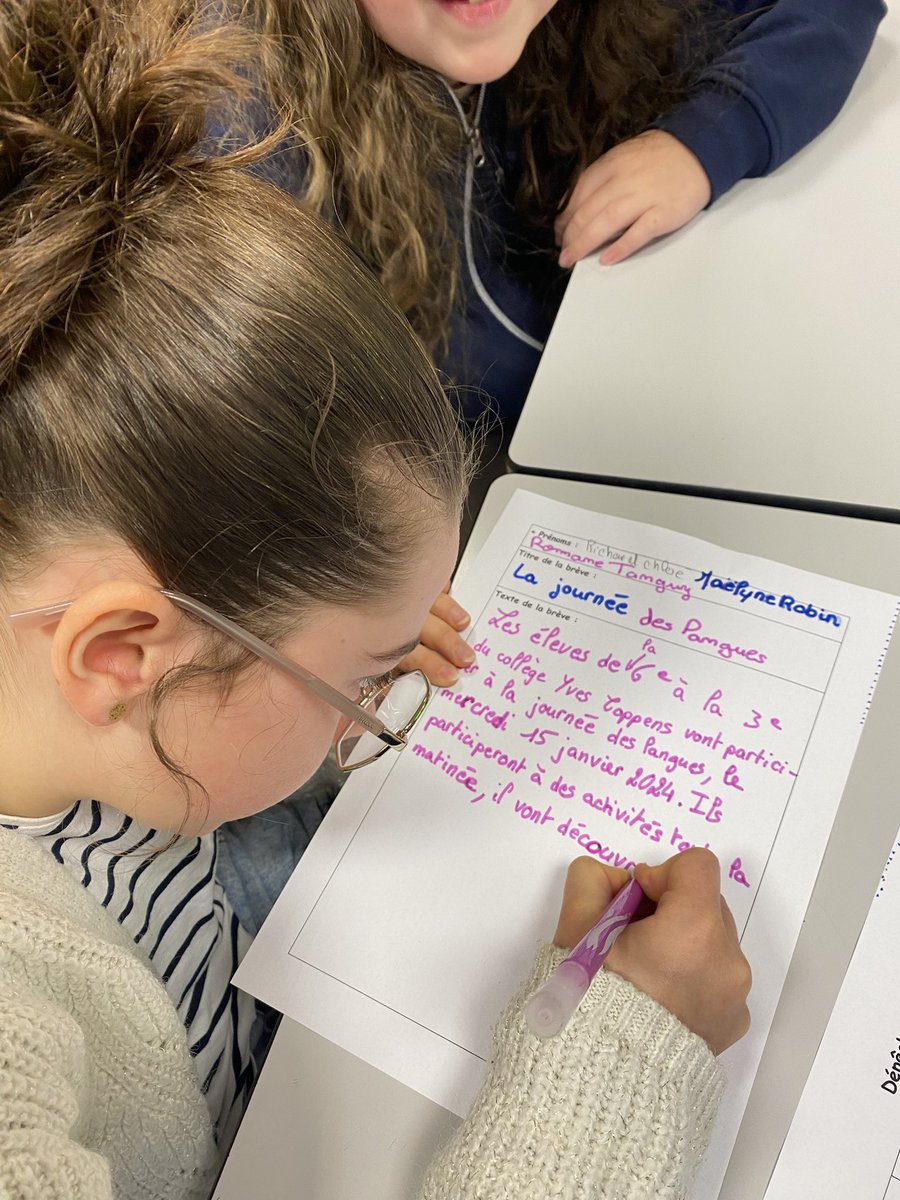 • Prénoms : Richard chloé Maëlyne Robin
Romane Tanguy
Titre de la brève :
La journée des langues
Texte de la brève :
Les élèves de la 6e à la 3e
du collège Yves Coppens vont partici-
er à la journée des langues, le
mercredi 15 janvier 2024. Ils
participeront à des activités la
matinée, il vont découvr
Dépê